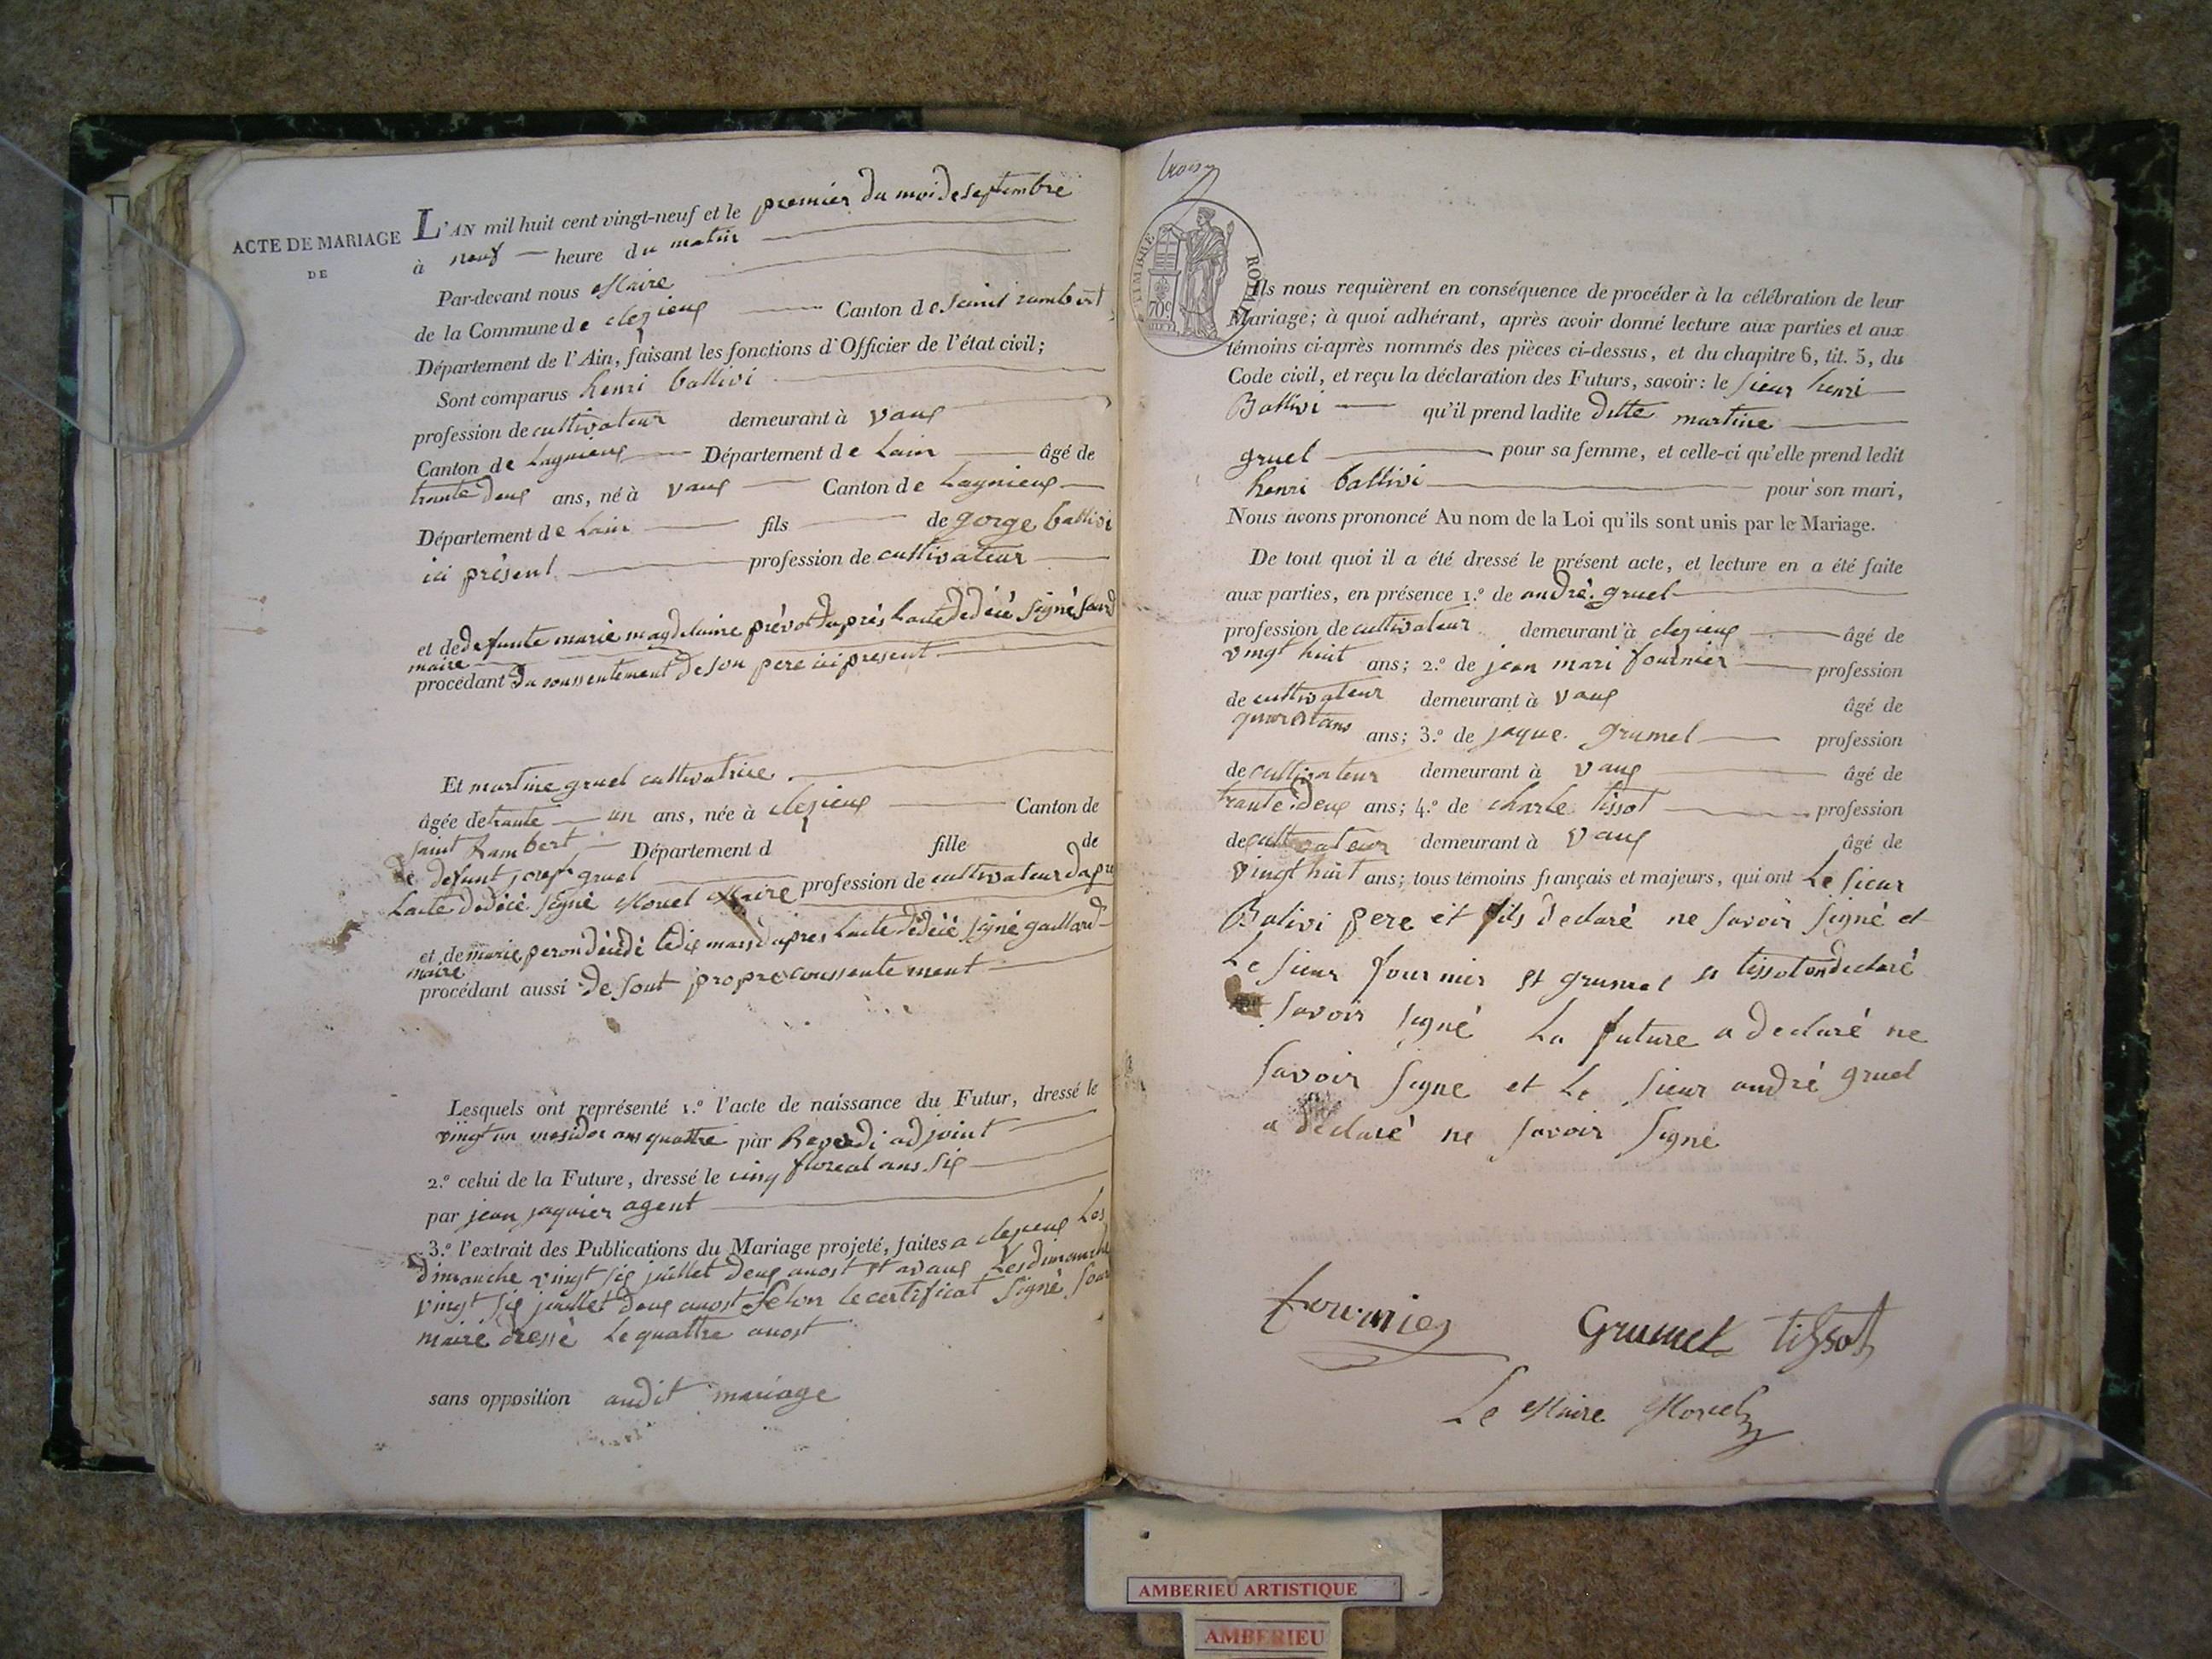 ACTE DE MARIAGE
DE
L'AN mil huit cent vingt-neuf et le premier du moi de septembre
à neuf heure du matin
Par-devant nous Maire
de la Commune de clezieux Canton de saint rambert
Département de l'Ain, faisant les fonctions d'Officier de l'état civil;
Sont comparus henri ballivi
profession de cultivateur demeurant à vaux
Canton de Lagnieux Département de Lain âgé de
trante deux ans, né à vaux Canton de Lagnieux
Département de Lain fils de gorge ballivi
ici présent profession de cultivateur
et de defunte marie magdelaine prévot daprés Lacte dédécé signé
maire
procédant du conssentement de son pere ici present
Et martine gruel cultivatrice
âgée de trante un ans, née à clezieux Canton de
saint Rambert Département d fille de
de defunt joseph gruel
Lacte dédécé signé Morel Maire profession de cultivateur dapre
et de marie peron décédé le dix mars daprès Lacte dédécé signé gaillard
maire
procédant aussi de sont propre conssentement
Lesquels ont représenté 1.º l'acte de naissance du Futur, dressé le
vingt un mesidor ans quattre par adjoint
2.º celui de la Future, dressé le cinq floreal ans six
par jean jaquier agent
3.º l'extrait des Publications du Mariage projeté, faites a clezieux Les
dimanche vingt six juillet deux auost et a vaux Les dimanche
vingt six juillet deux auost selon le certificat signé
maire dressé Le quattre auost
sans opposition audit mariage
TIMBRE ROYAL
70c
Ils nous requièrent en conséquence de procéder à la célébration de leur
Mariage; à quoi adhérant, après avoir donné lecture aux parties et aux
témoins ci-après nommés des pièces ci-dessus, et du chapitre 6, tit. 5, du
Code civil, et reçu la déclaration des Futurs, savoir: le sieur henri
Ballivi qu'il prend ladite ditte martine
gruel pour sa femme, et celle-ci qu'elle prend ledit
henri ballivi pour son mari,
Nous avons prononcé Au nom de la Loi qu'ils sont unis par le Mariage.
De tout quoi il a été dressé le présent acte, et lecture en a été faite
aux parties, en présence 1.º de andré gruel
profession de cultivateur demeurant à clezieux âgé de
vingt huit ans; 2.º de jean mari fournier profession
de cultivateur demeurant à vaux âgé de
ans; 3.º de jaque grumel profession
de cultivateur demeurant à vaux âgé de
trante deux ans; 4.º de charle tissot profession
de cultivateur demeurant à vaux âgé de
vingt huit ans; tous témoins français et majeurs, qui ont Le sieur
Balivi pere et fils déclaré ne savoir signé et
Le sieur fournier et grumel et tissot on declaré
savoir signé La future a declaré ne
savoir signe et Le sieur andré gruel
a déclaré ne savoir signe
fournier
Grumel tissot
Le Maire Morel
AMBERIEU ARTISTIQUE
AMBERIEU